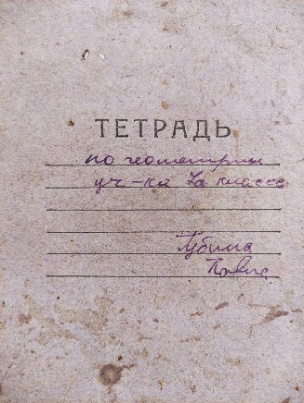 ТЕТРАДЬ
по геометрии
уч-ка 7а класса
Губина
Павла